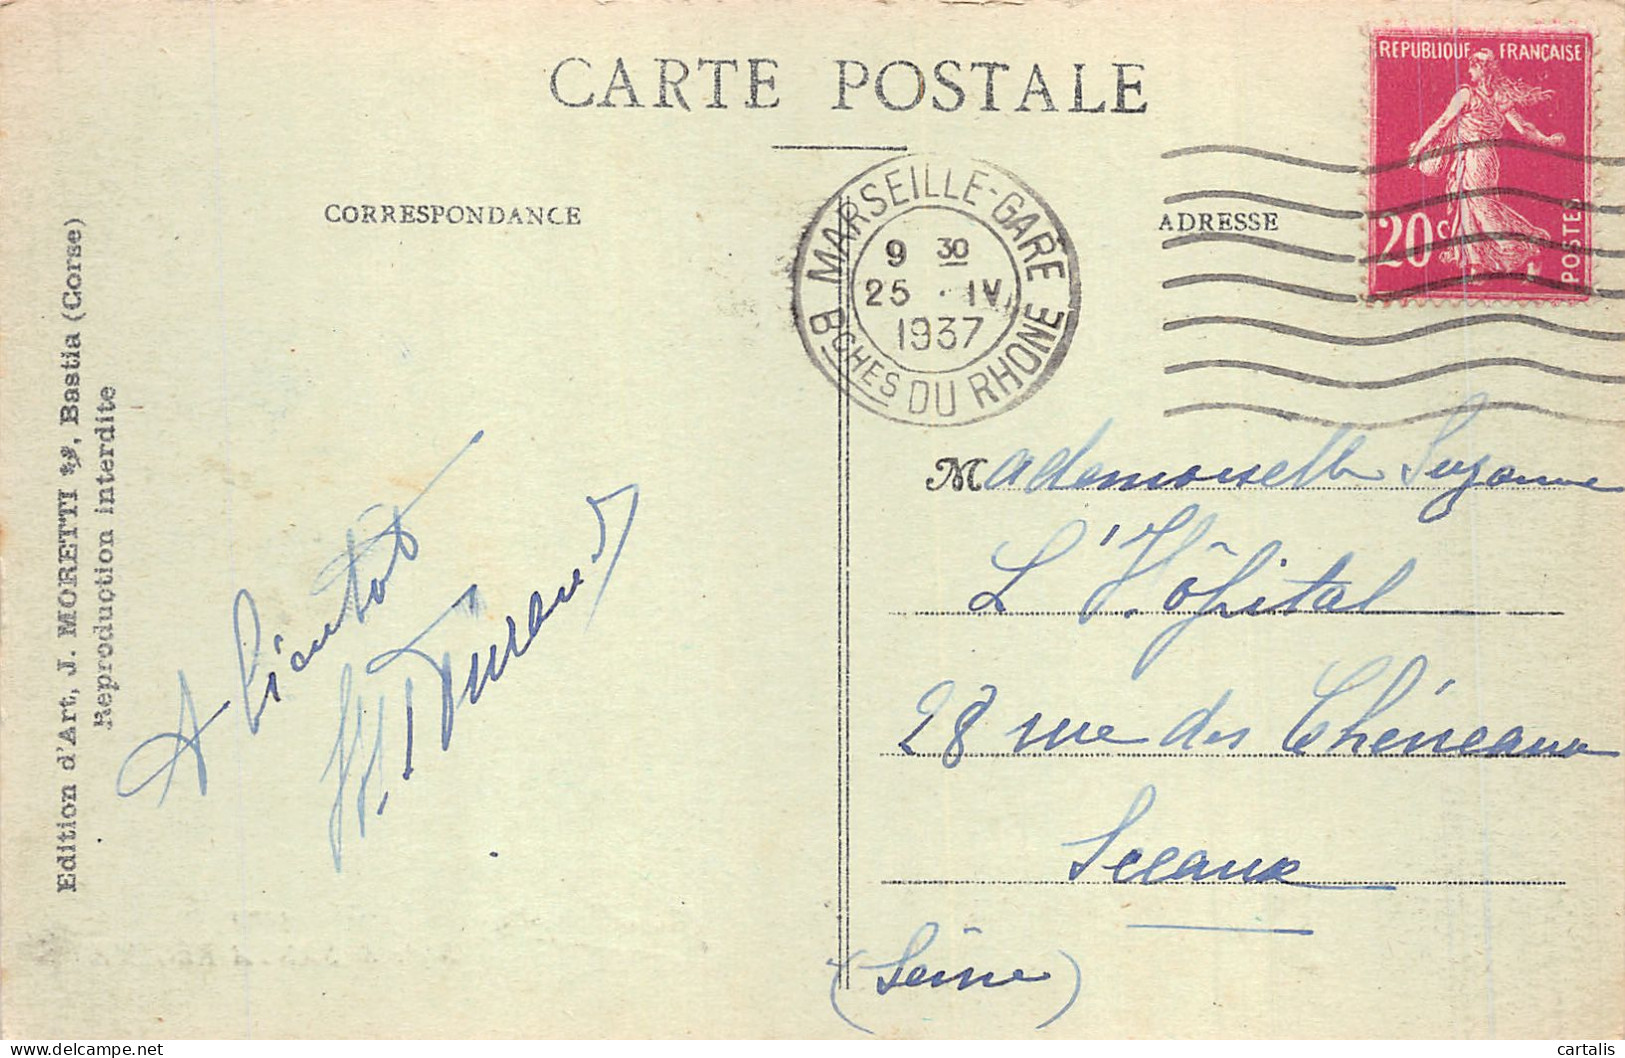 CARTE POSTALE
CORRESPONDANCE
ADRESSE
REPUBLIQUE FRANÇAISE
20c
POSTES
MARSEILLE-GARE
9 30
25 · IV
1937
BCHES DU RHONE
Edition d'Art, J. MORETTI, Bastia (Corse)
Reproduction interdite
A bientôt
Durand
Mademoiselle Suzanne
L'Hôpital
28 rue des Chéneaux
Sceaux
(Seine)
cartalis